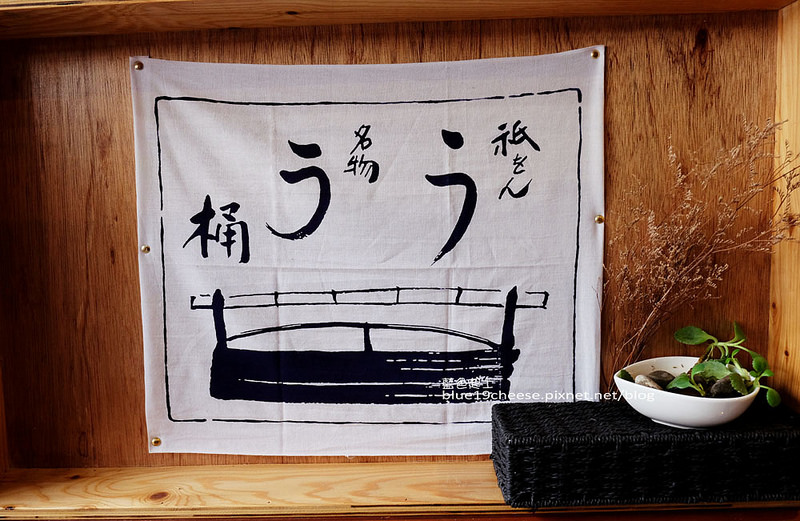 祇をん
う
名物
う
桶
藍色起士
blue19cheese.pixnet.net/blog